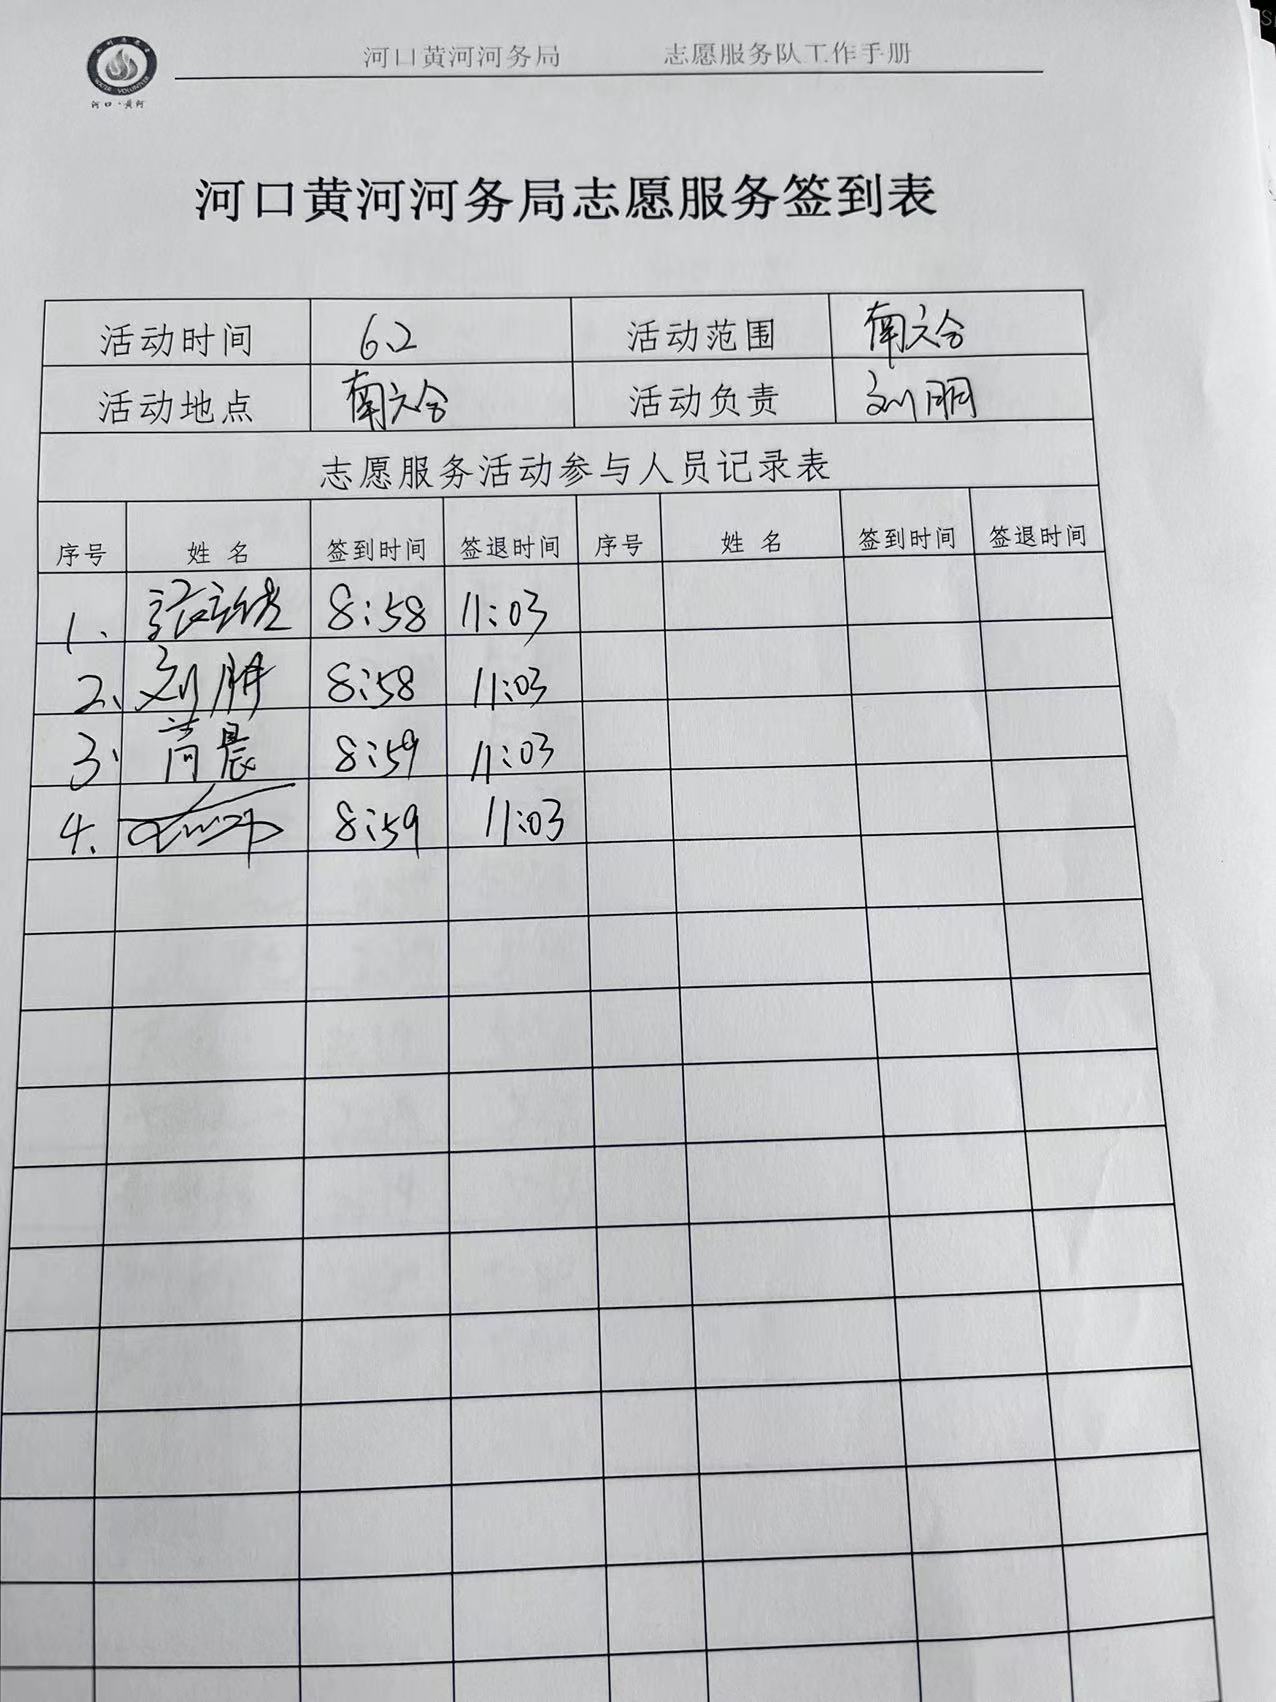 河口黄河河务局 志愿服务队工作手册
WATER VOLUNTEER
河口·黄河
河口黄河河务局志愿服务签到表
活动时间 6.2 活动范围 南六合
活动地点 南六合 活动负责 刘朋
志愿服务活动参与人员记录表
序号 姓名 签到时间 签退时间 序号 姓名 签到时间 签退时间
1、 8:58 11:03
2、 刘朋 8:58 11:03
3、 晨 8:59 11:03
4、 8:59 11:03